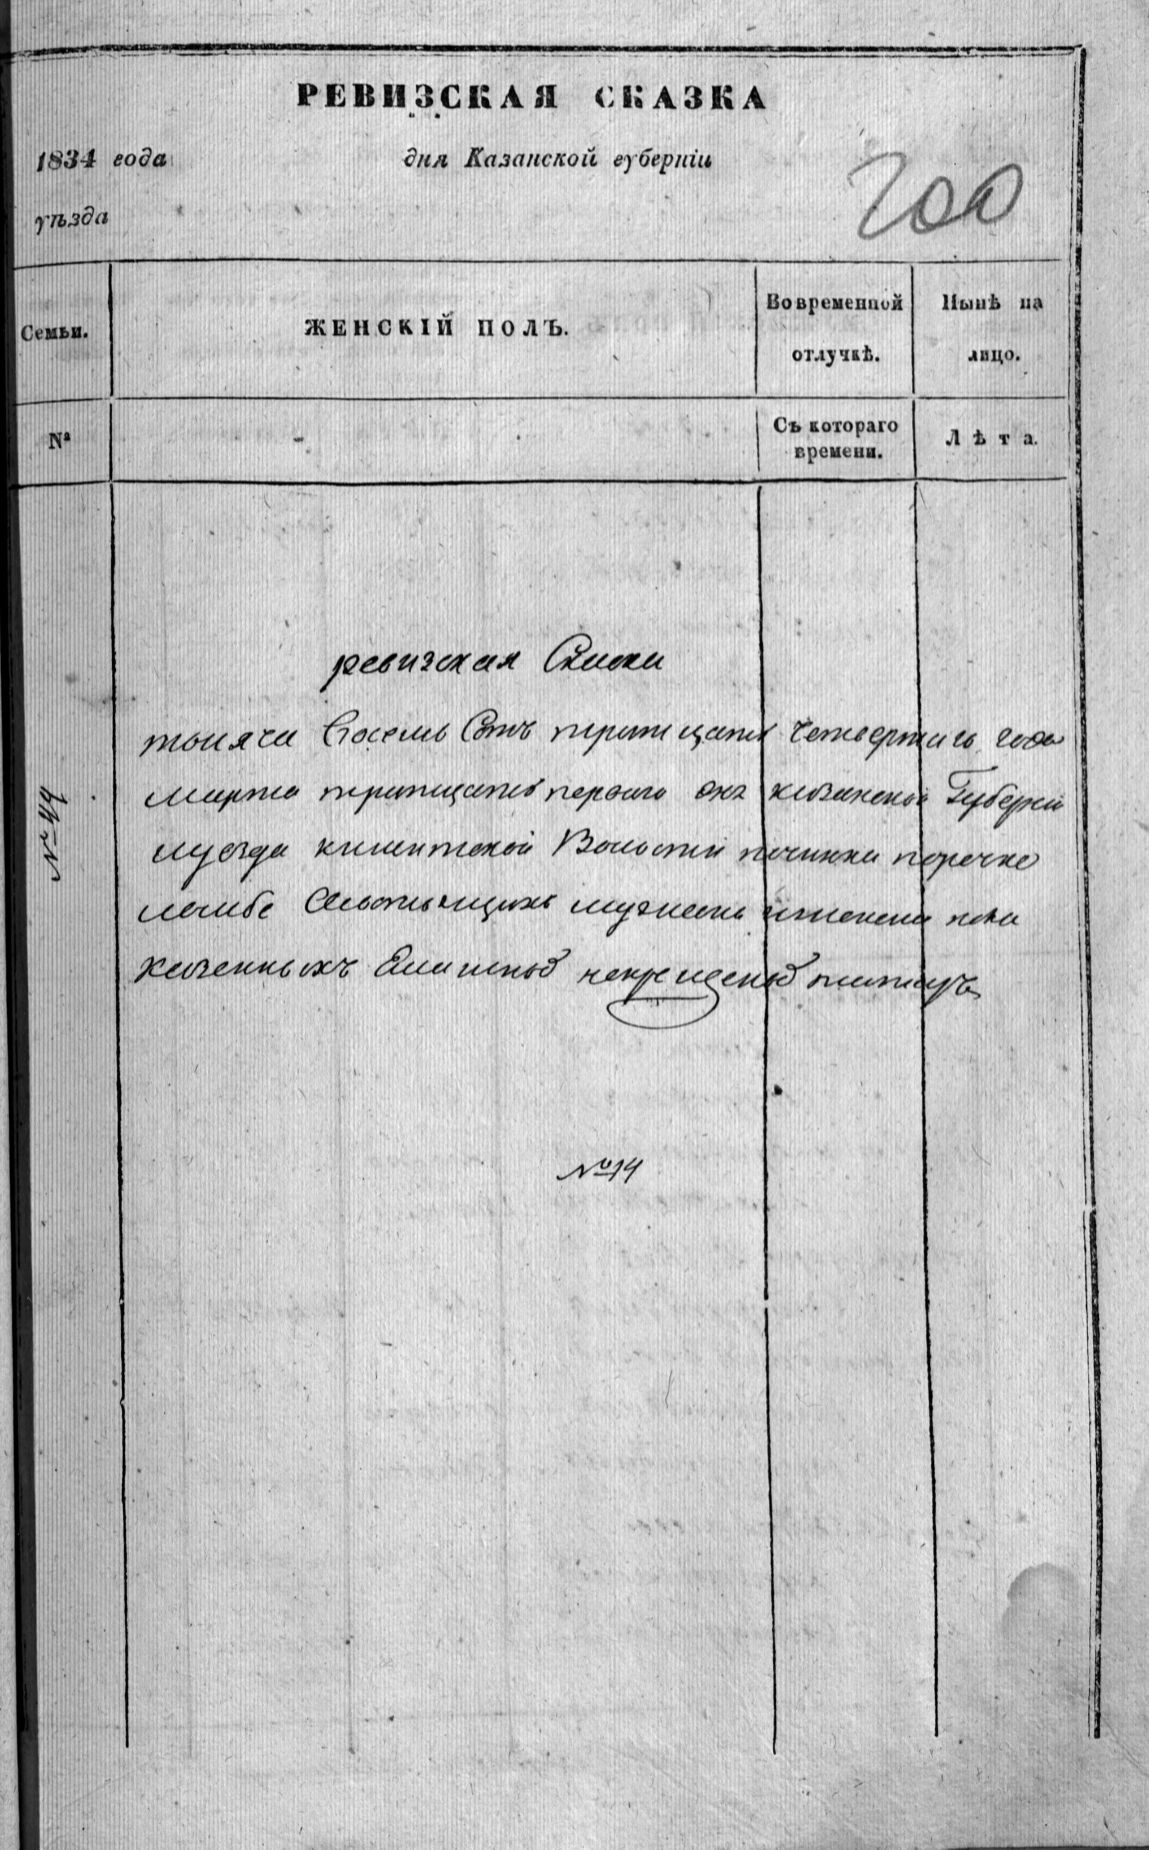 РЕВИЗСКАЯ СКАЗКА
1834 года дня Казанской губерніи
уѣзда
200
Семьи. ЖЕНСКІЙ ПОЛЪ. Во временной отлучкѣ. Нынѣ на лицо.
№ Съ котораго времени. Лѣта.
ревизская Скаска
тысяча Восемь Сотъ тритцать четвертаго года
марта тритцать первого дня казанской Губерни
уезда Волости починка
мужеска женска пола
казенныхъ некрещеной татаръ
№ 44
№ 14